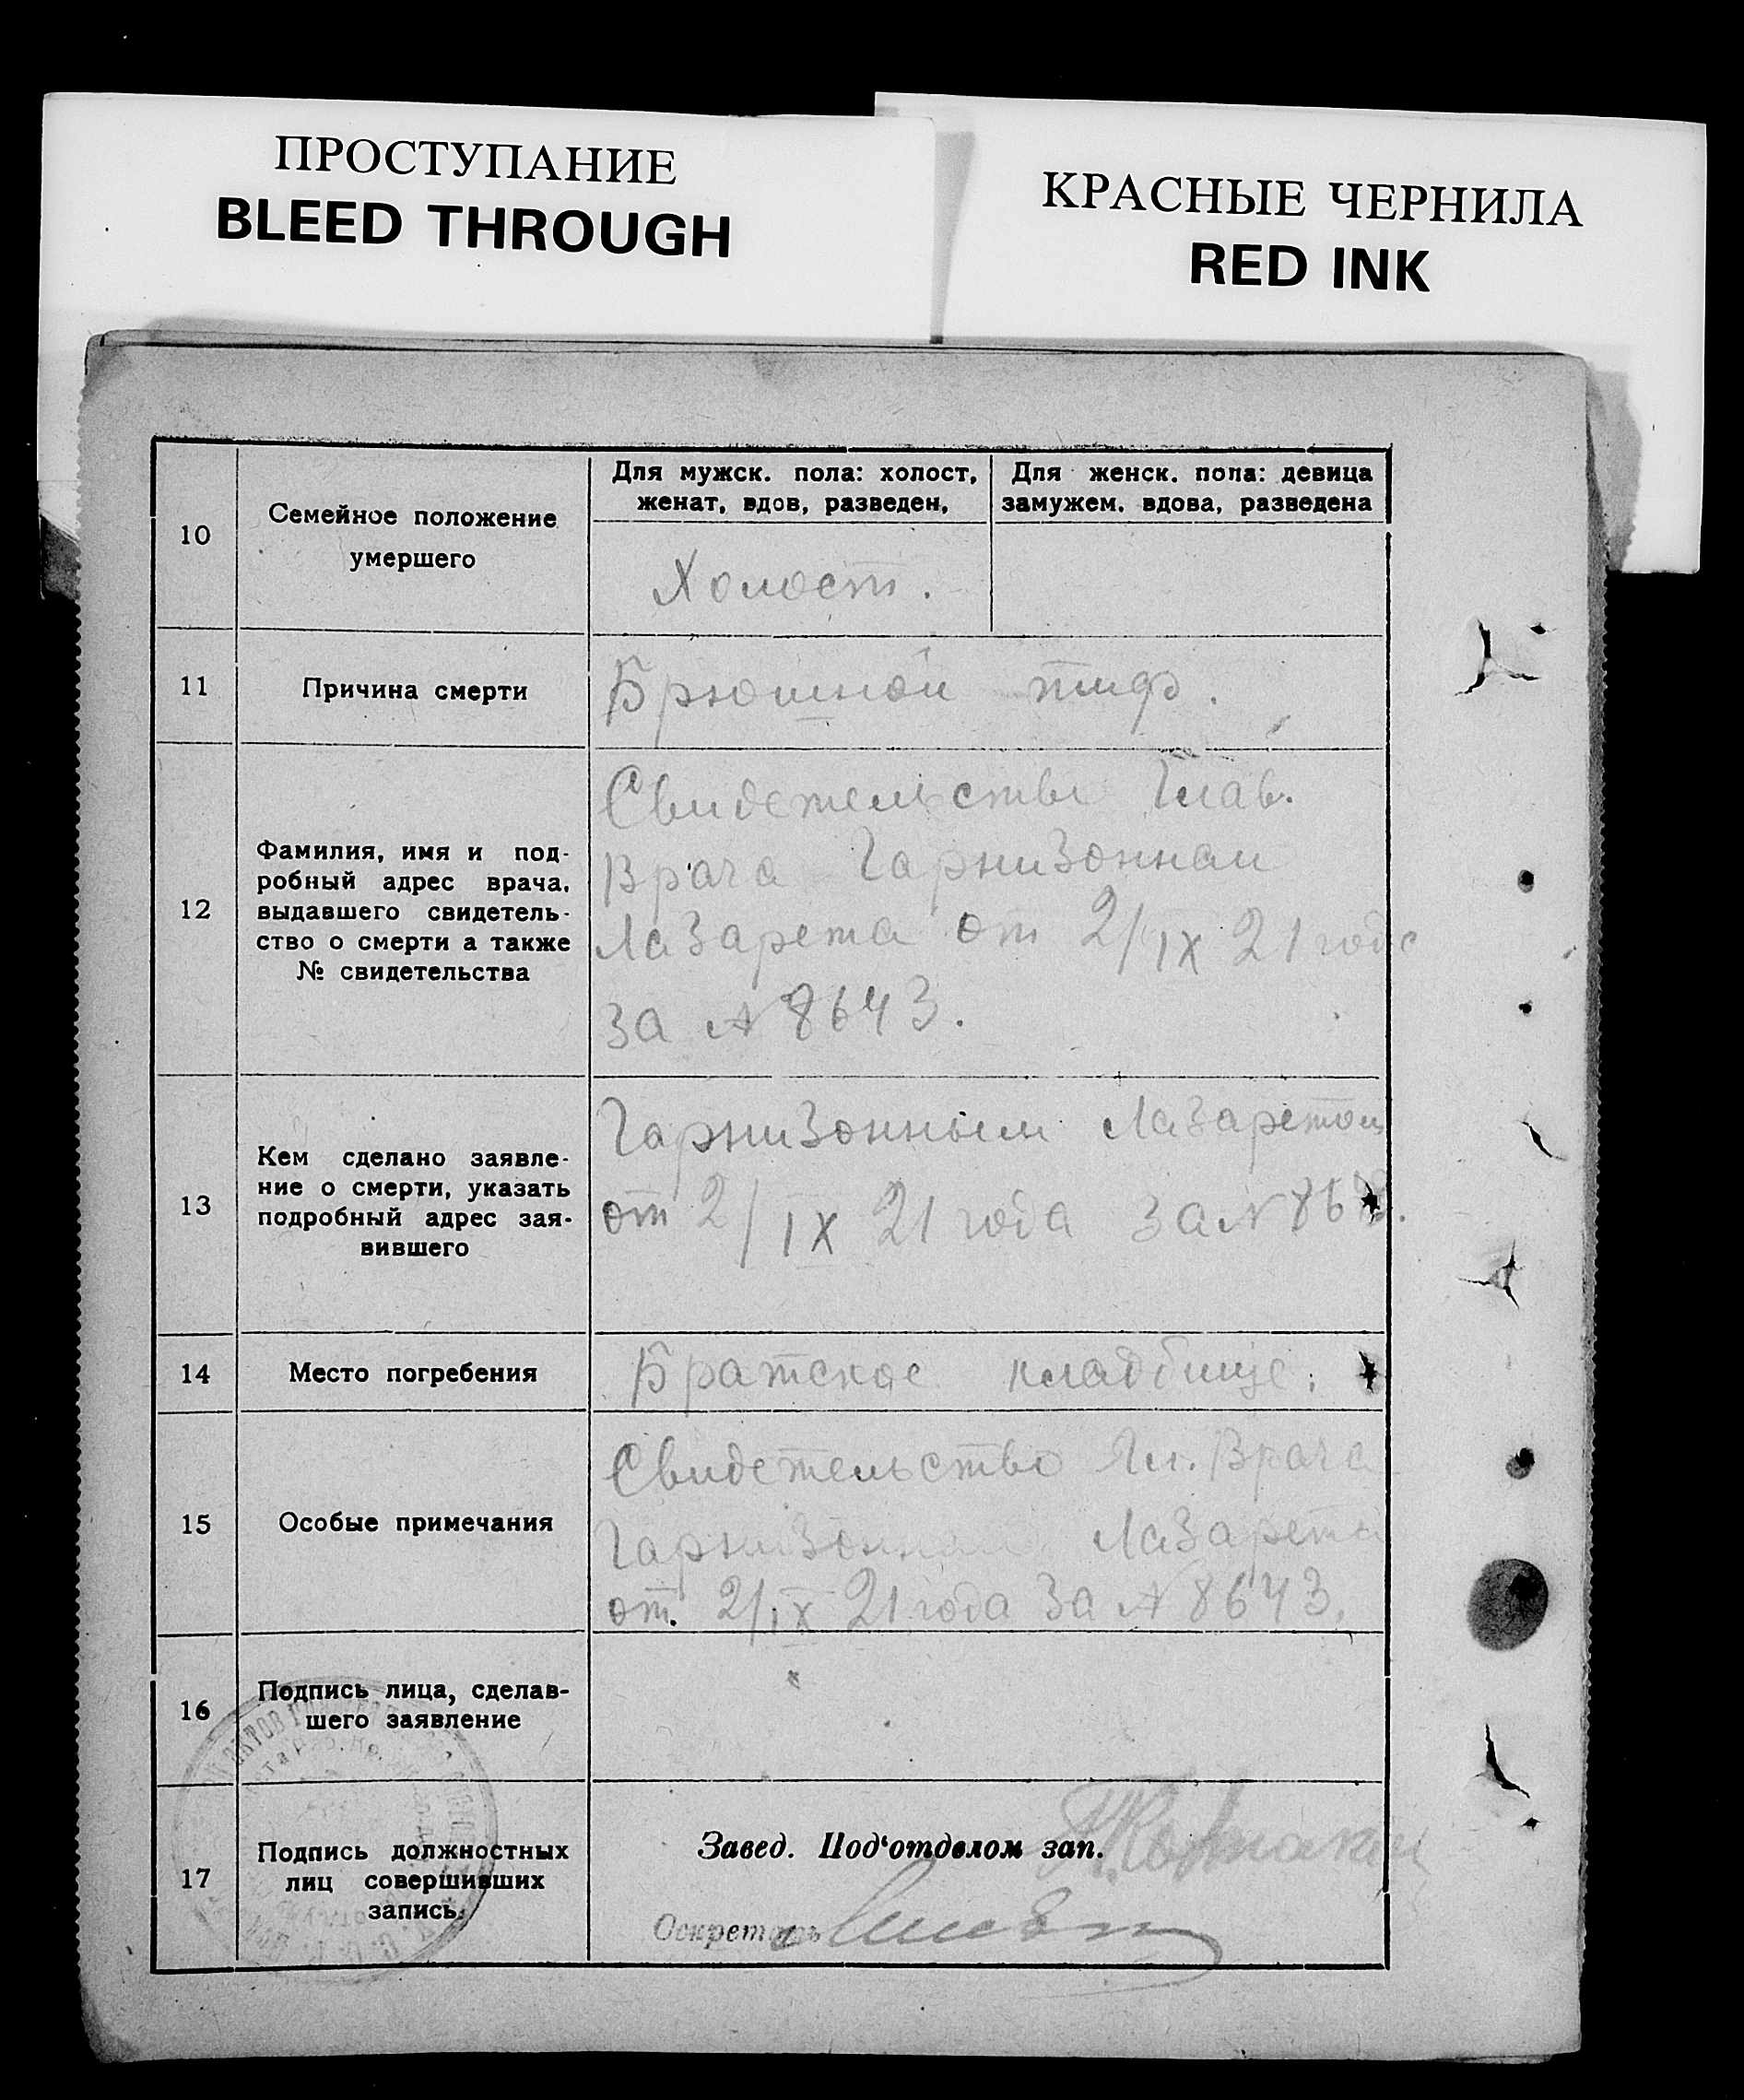 ПРОСТУПАНИЕ
BLEED THROUGH
КРАСНЫЕ ЧЕРНИЛА
RED INK
10
Семейное положение
умершего
Для мужск. пола: холост,
женат, вдов, разведен,
Для женск. пола: девица
замужем. вдова, разведена
Холост.
11
Причина смерти
Брюшной тиф.
12
Фамилия, имя и под-
робный адрес врача,
выдавшего свидетель-
ство о смерти а также
№ свидетельства
Свидетельства Глав.
Врача Гарнизонная
Лазарета от 2/IX 21 года
за № 8643.
13
Кем сделано заявле-
ние о смерти, указать
подробный адрес зая-
вившего
Гарнизонным Лазаретом
от 2/IX 21 года за №
14
Место погребения
Братское кладбище.
15
Особые примечания
Свидетельство Гл. Врача
Лазарета
от. 2/IX 21 года за № 8643.
16
Подпись лица, сделав-
шего заявление
17
Подпись должностных
лиц совершивших
запись.
Завед. Под'отделом зап.
Секретарь